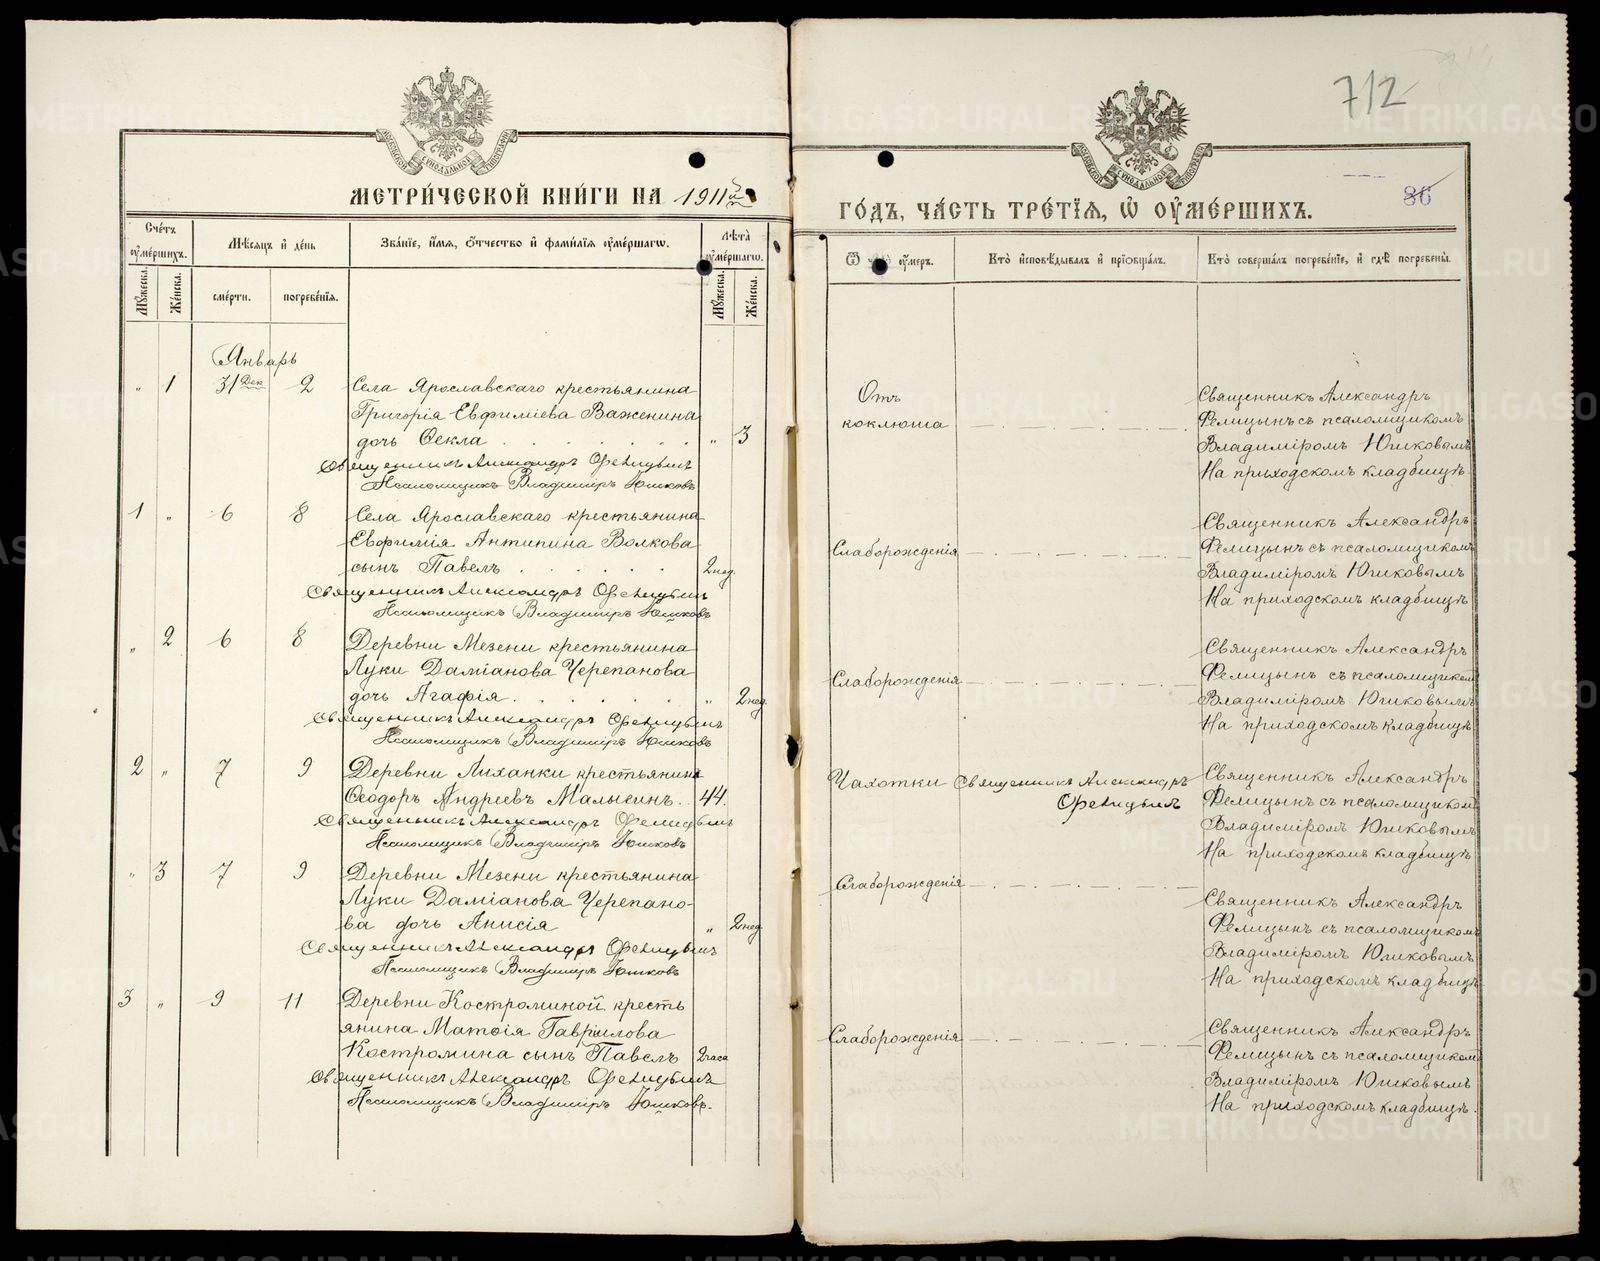 МЕТРИЧЕСКОЙ КНИГИ НА 1911
Счетъ умершихъ.
Мѣсяцъ и день
Званіе, имя, отчество и фамилія умершагѡ.
Лѣта умершагѡ.
Мужеска. Женска.
смерти. погребенія.
Мужеска. Женска.
Январь
" 1 31 Дек 2 Села Ярославскаго крестьянина
Григорія Евфиміева Важенина
дочь Ѳекла . . . . . . . " 3
Священникъ Александръ Фелицынъ
Псаломщикъ Владиміръ Юшковъ
1 " 6 8 Села Ярославскаго крестьянина
Евфимія Антипина Волкова
сынъ Павелъ . . . . . 2 нед.
Священникъ Александръ Фелицынъ
Псаломщикъ Владиміръ Юшковъ
" 2 6 8 Деревни Мезени крестьянина
Луки Даміанова Черепанова
дочь Агафія . . . . . . " 2 нед.
Священникъ Александръ Фелицынъ
Псаломщикъ Владиміръ Юшковъ
2 " 7 9 Деревни Лиханки крестьянинъ
Ѳеодоръ Андреевъ Малыгинъ . . 44.
Священникъ Александръ Фелицынъ
Псаломщикъ Владиміръ Юшковъ
" 3 7 9 Деревни Мезени крестьянина
Луки Даміанова Черепано-
ва дочь Анисія " 2 нед
Священникъ Александръ Фелицынъ
Псаломщикъ Владиміръ Юшковъ
3 " 9 11 Деревни Костроминой кресть
янина Матѳія Гаврилова
Костромина сынъ Павелъ 2 часа
Священникъ Александръ Фелицынъ
Псаломщикъ Владиміръ Юшковъ.
712
86
ГОДЪ, ЧАСТЬ ТРЕТІЯ, Ѡ УМЕРШИХЪ.
Ѿ умеръ.
Кто исповѣдывалъ и пріобщалъ.
Кто совершалъ погребеніе, и гдѣ погребены.
Отъ
коклюша
Священникъ Александръ
Фелицынъ съ псаломщикомъ
Владиміромъ Юшковымъ
На приходскомъ кладбищѣ
Слаборожденія
Священникъ Александръ
Фелицынъ съ псаломщикомъ
Владиміромъ Юшковымъ
На приходскомъ кладбищѣ
Слаборожденія
Священникъ Александръ
Фелицынъ съ псаломщикомъ
Владиміромъ Юшковымъ
На приходскомъ кладбищѣ
Чахотки
Священникъ Александръ
Фелицынъ
Священникъ Александръ
Фелицынъ съ псаломщикомъ
Владиміромъ Юшковымъ
На приходскомъ кладбищѣ
Слаборожденія
Священникъ Александръ
Фелицынъ съ псаломщикомъ
Владиміромъ Юшковымъ
На приходскомъ кладбищѣ.
Слаборожденія
Священникъ Александръ
Фелицынъ съ псаломщикомъ
Владиміромъ Юшковымъ
На приходскомъ кладбищѣ.
METRIKI.GASO-URAL.RU